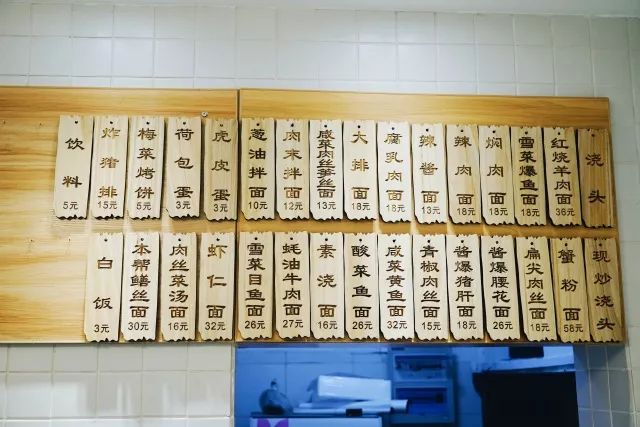 浇头
红烧羊肉面
36元
雪菜爆鱼面
18元
焖肉面
18元
辣肉面
18元
辣酱面
13元
腐乳肉面
18元
大排面
18元
咸菜肉丝笋丝面
13元
肉末拌面
12元
葱油拌面
10元
虎皮蛋
3元
荷包蛋
3元
梅菜烤饼
5元
炸猪排
15元
饮料
5元
现炒浇头
蟹粉面
58元
扁尖肉丝面
18元
酱爆腰花面
26元
酱爆猪肝面
18元
青椒肉丝面
15元
咸菜黄鱼面
32元
酸菜鱼面
26元
素浇面
16元
蚝油牛肉面
27元
雪菜目鱼面
26元
虾仁面
32元
肉丝菜汤面
16元
本帮鳝丝面
30元
白饭
3元